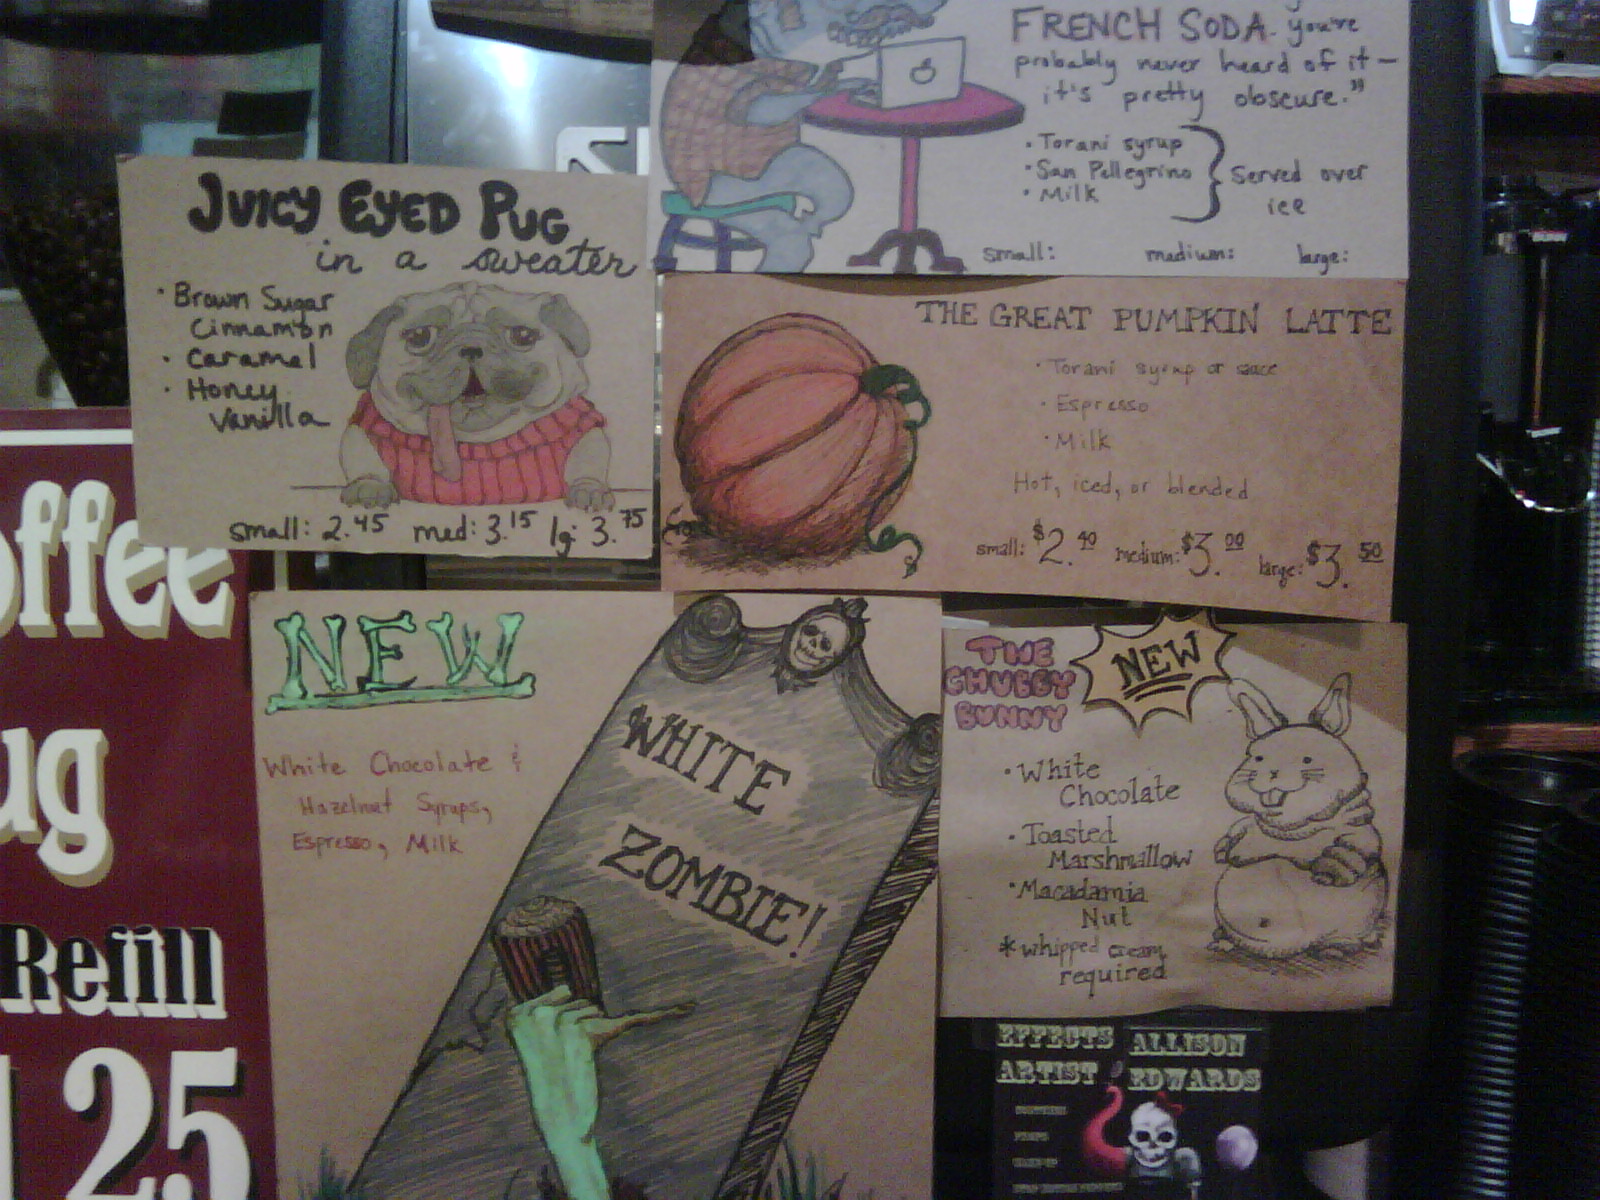 FRENCH SODA. you're
probably never heard of it—
it's pretty obscure."
• Torani syrup
• San Pellegrino
• Milk
Served over
ice
small: medium: large:
JUICY EYED PUG
in a sweater
• Brown Sugar
Cinnamon
• Caramel
• Honey
Vanilla
small: 2.45 med: 3.15 lg: 3.75
THE GREAT PUMPKIN LATTE
• Torani syrup or sauce
• Espresso
• Milk
Hot, iced, or blended
small: $2.40 medium: $3.00 large: $3.50
NEW
White Chocolate &
Hazelnut Syrups,
Espresso, Milk
WHITE
ZOMBIE!
THE
CHUBBY
BUNNY
NEW
• White
Chocolate
• Toasted
Marshmallow
• Macadamia
Nut
* whipped cream
required
offee
ug
Refill
1.25
EFFECTS ALLISON
ARTIST EDWARDS